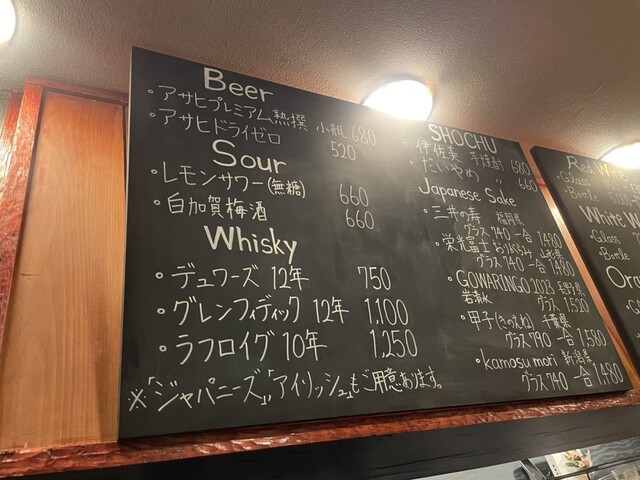 Beer
・アサヒプレミアム熟撰 小瓶 680
・アサヒドライゼロ 520
Sour
・レモンサワー(無糖) 660
・白加賀梅酒 660
Whisky
・デュワーズ 12年 750
・グレンフィディック 12年 1,100
・ラフロイグ 10年 1,250
※「ジャパニーズ」「アイリッシュ」もご用意あります。
SHOCHU
・伊佐美 芋焼酎 680
・だいやめ 〃 660
Japanese Sake
・三井の寿 福岡県
グラス 740 一合 1,480
・栄光冨士 山形県
グラス 740 一合 1,480
・GOWARINGO 2023 長野県
岩清水 グラス 1,520
・甲子(きのえね) 千葉県
グラス 790 一合 1,580
・kamosu mori 新潟県
グラス 740 一合 1,480
Red Wine
・Glass
・Bottle
White W
・Glass
・Bottle
Ora